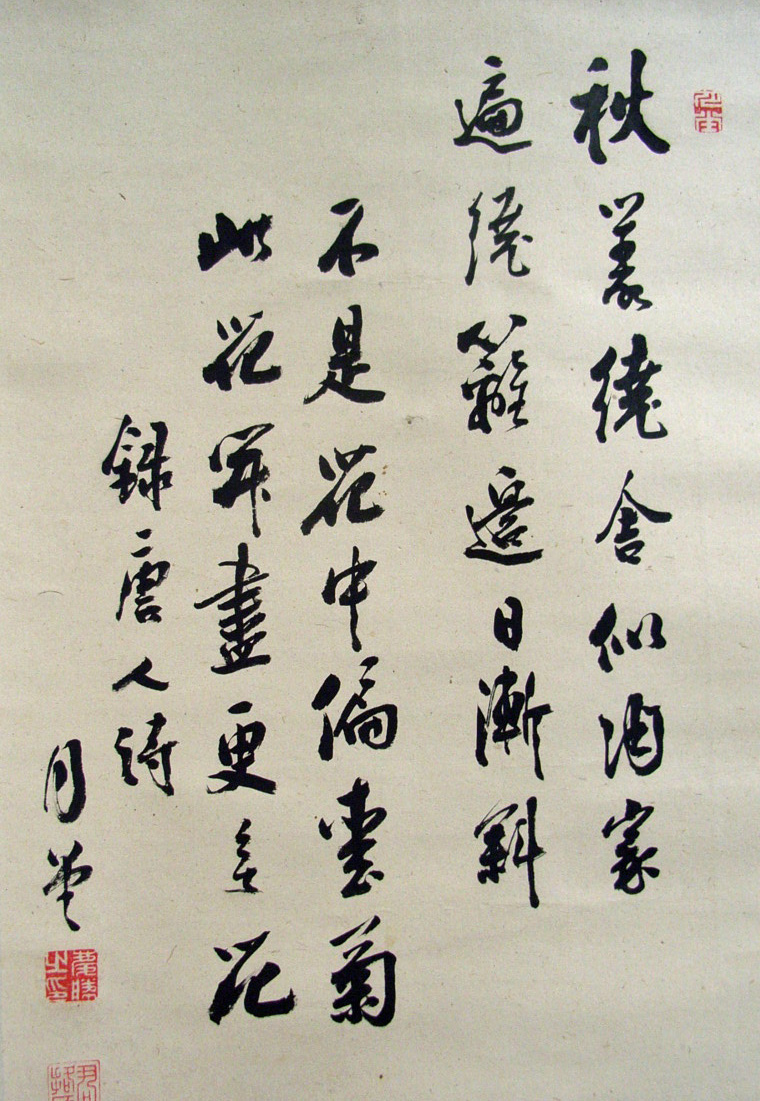 秋叢繞舍似陶家
遍繞籬邊日漸斜
不是花中偏愛菊
此花開盡更無花
錄唐人詩
月
慶勝之印